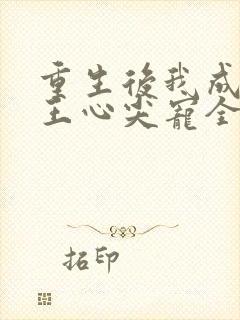 重生後我成
王心尖寵全
招印